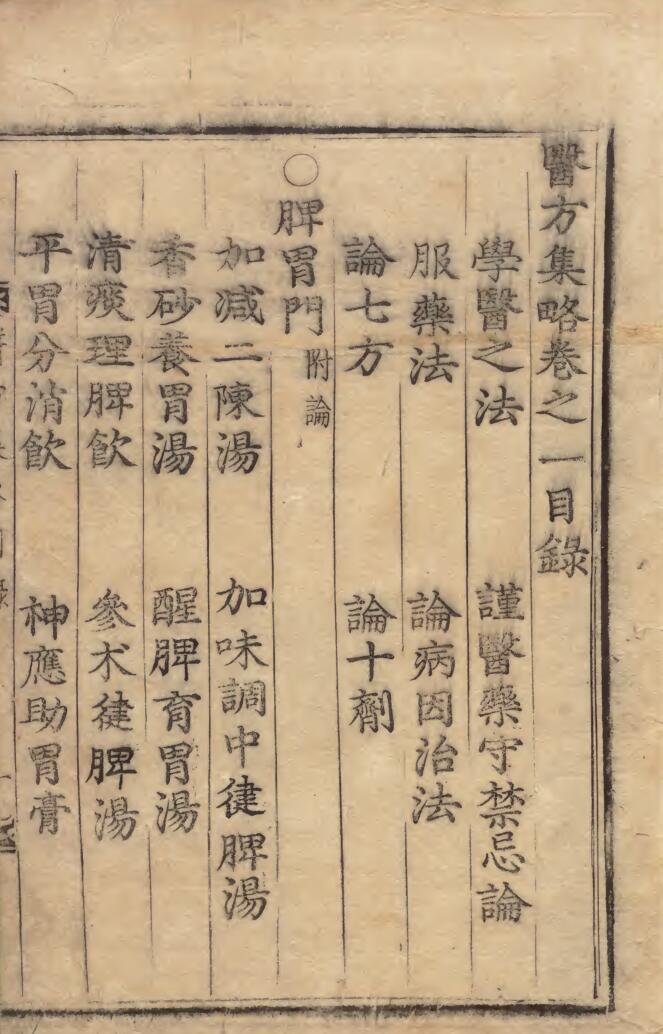 醫方集略卷之一目錄
學醫之法 謹醫藥守禁忌論
服藥法 論病因治法
論七方 論十劑
○脾胃門 附論
加减二陳湯 加味調中徤脾湯
香砂養胃湯 醒脾育胃湯
清痰理脾飮 參朮徤脾湯
平胃分消飮 神應助胃膏